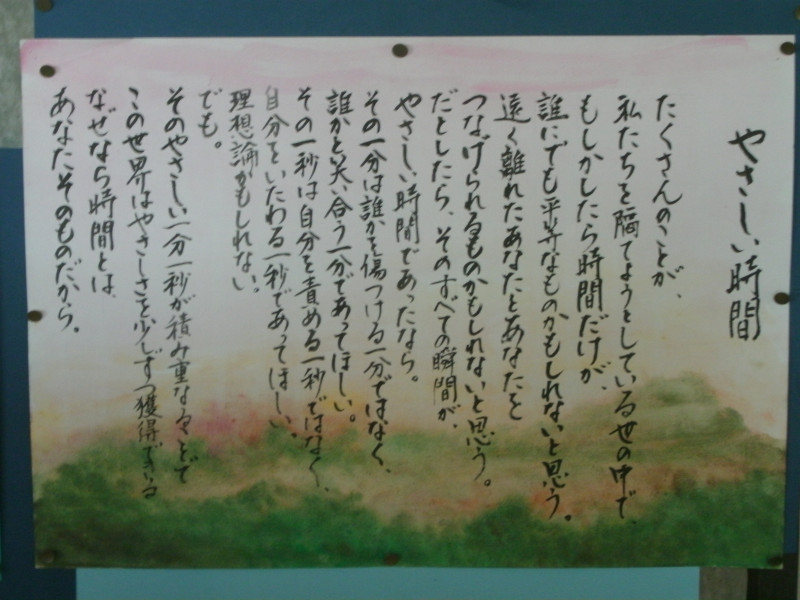 やさしい時間
たくさんのことが、
私たちを隔てようとしている世の中で、
もしかしたら時間だけが、
誰にでも平等なものかもしれないと思う。
遠く離れたあなたとあなたを
つなげられるものかもしれないと思う。
だとしたら、そのすべての瞬間が、
やさしい時間であったなら。
その一分は誰かを傷つける一分ではなく、
誰かと笑い合う一分であってほしい。
その一秒は自分を責める一秒ではなく、
自分をいたわる一秒であってほしい。
理想論かもしれない。
でも。
そのやさしい一分一秒が積み重なることで
この世界はやさしさを少しずつ獲得できる
なぜなら時間とは、
あなたそのものだから。